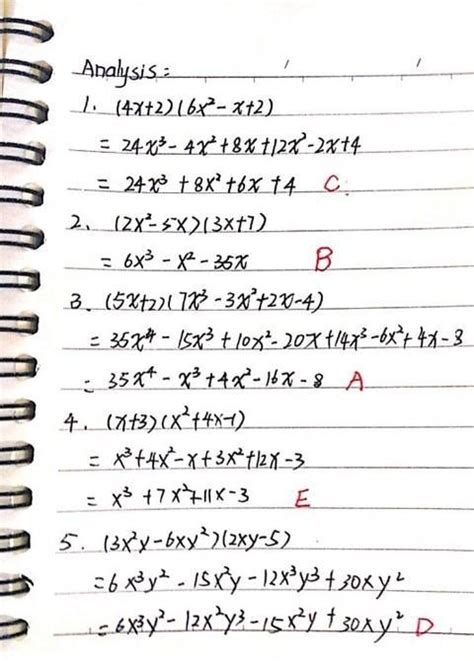 Analysis:
1. (4x+2)(6x²-x+2)
= 24x³-4x²+8x+12x²-2x+4
= 24x³+8x²+6x+4 C
2. (2x²-5x)(3x+7)
= 6x³-x²-35x B
3. (5x+2)(7x³-3x²+2x-4)
= 35x⁴-15x³+10x²-20x+14x³-6x²+4x-8
= 35x⁴-x³+4x²-16x-8 A
4. (x+3)(x²+4x-1)
= x³+4x²-x+3x²+12x-3
= x³+7x²+11x-3 E
5. (3x²y-6xy²)(2xy-5)
=6x³y²-15x²y-12x³y³+30xy²
=6x³y²-12x²y³-15x²y+30xy² D